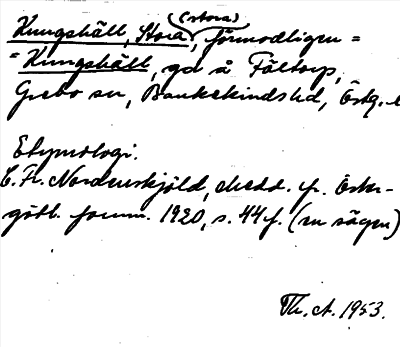 (stora)
Kungshäll, Stora, förmodligen =
= Kungshäll, gd å Fältorp,
Grebo sn, Bankekinds hd, Östg. l
Etymologi.
C. Fr. Nordenskjöld, Medd. fr. Öster-
götl. fornm. 1920, s. 44 f. (en sägen)
Th. A. 1953.